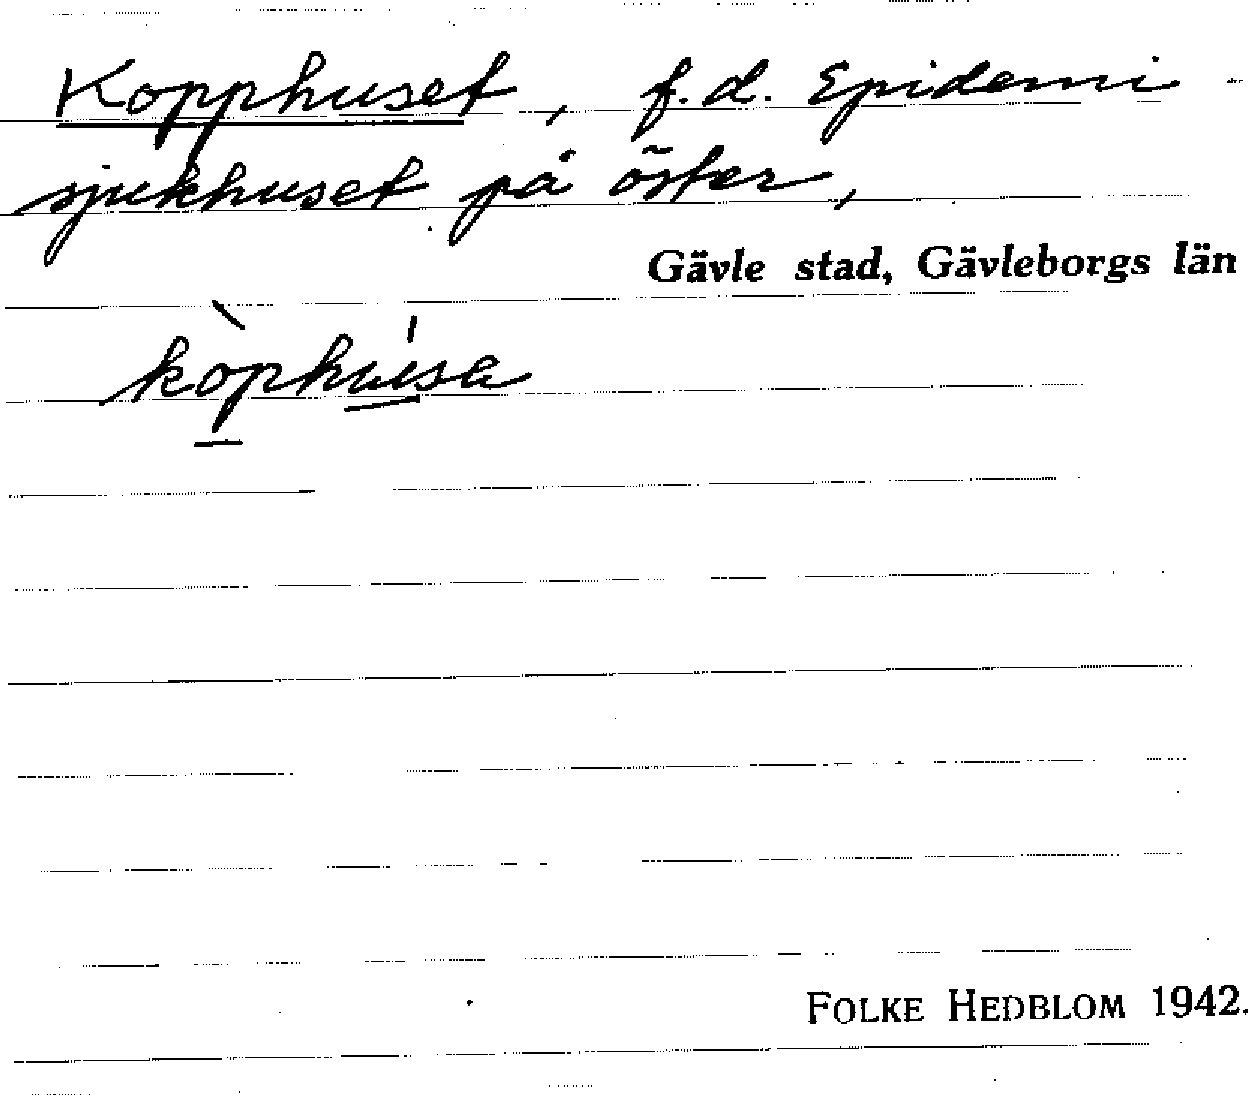 Kopphuset, f.d. Epidemi-
sjukhuset på öster,
Gävle stad, Gävleborgs län
kòphu̍sa
FOLKE HEDBLOM 1942.